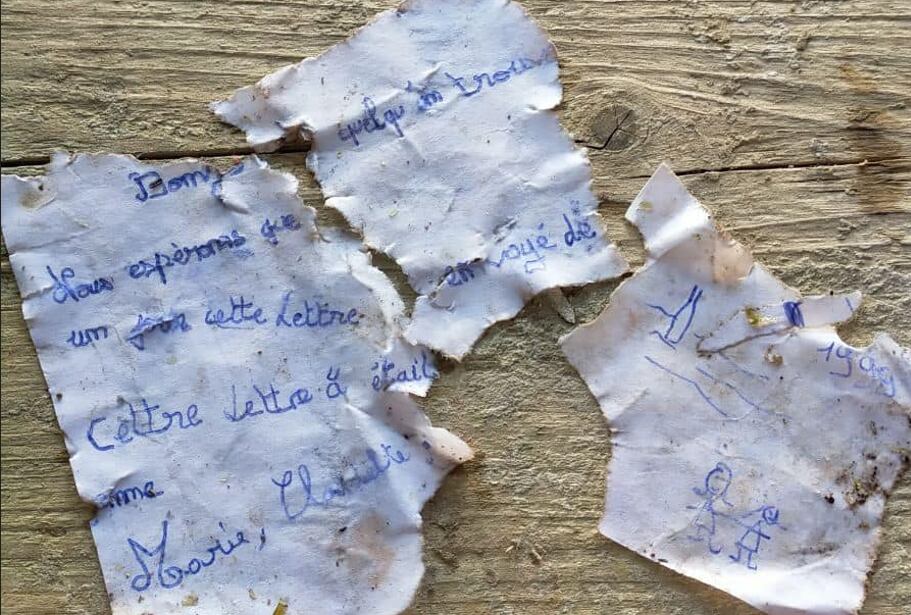 Bonj
Nous espérons que quelqu'un trouve
un jour cette Lettre
Cettre Lettre à était envoyé de
Marie,
1999